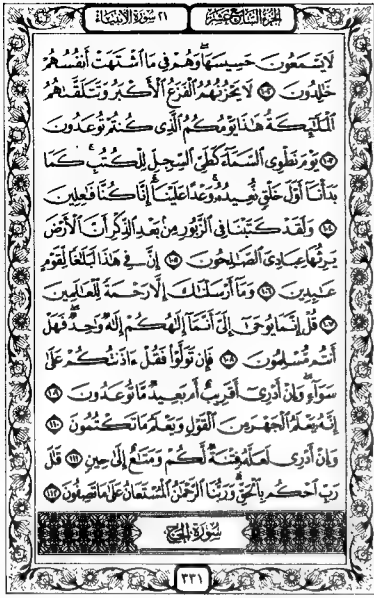 الجزء السابع عشر
٢١ سورة الأنبياء
لَا يَسْمَعُونَ حَسِيسَهَا ۖ وَهُمْ فِي مَا ٱشْتَهَتْ أَنفُسُهُمْ
خَٰلِدُونَ ١٠٢ لَا يَحْزُنُهُمُ ٱلْفَزَعُ ٱلْأَكْبَرُ وَتَتَلَقَّىٰهُمُ
ٱلْمَلَٰٓئِكَةُ هَٰذَا يَوْمُكُمُ ٱلَّذِي كُنتُمْ تُوعَدُونَ
١٠٣ يَوْمَ نَطْوِي ٱلسَّمَآءَ كَطَيِّ ٱلسِّجِلِّ لِلْكُتُبِ ۚ كَمَا
بَدَأْنَآ أَوَّلَ خَلْقٍ نُّعِيدُهُۥ ۚ وَعْدًا عَلَيْنَآ ۚ إِنَّا كُنَّا فَٰعِلِينَ
١٠٤ وَلَقَدْ كَتَبْنَا فِي ٱلزَّبُورِ مِنۢ بَعْدِ ٱلذِّكْرِ أَنَّ ٱلْأَرْضَ
يَرِثُهَا عِبَادِيَ ٱلصَّٰلِحُونَ ١٠٥ إِنَّ فِي هَٰذَا لَبَلَٰغًا لِّقَوْمٍ
عَٰبِدِينَ ١٠٦ وَمَآ أَرْسَلْنَٰكَ إِلَّا رَحْمَةً لِّلْعَٰلَمِينَ
١٠٧ قُلْ إِنَّمَا يُوحَىٰٓ إِلَيَّ أَنَّمَآ إِلَٰهُكُمْ إِلَٰهٌ وَٰحِدٌ ۖ فَهَلْ
أَنتُم مُّسْلِمُونَ ١٠٨ فَإِن تَوَلَّوْا۟ فَقُلْ ءَاذَنتُكُمْ عَلَىٰ
سَوَآءٍ ۖ وَإِنْ أَدْرِيٓ أَقَرِيبٌ أَم بَعِيدٌ مَّا تُوعَدُونَ ١٠٩
إِنَّهُۥ يَعْلَمُ ٱلْجَهْرَ مِنَ ٱلْقَوْلِ وَيَعْلَمُ مَا تَكْتُمُونَ ١١٠
وَإِنْ أَدْرِي لَعَلَّهُۥ فِتْنَةٌ لَّكُمْ وَمَتَٰعٌ إِلَىٰ حِينٍ ١١١ قَٰلَ
رَبِّ ٱحْكُم بِٱلْحَقِّ ۗ وَرَبُّنَا ٱلرَّحْمَٰنُ ٱلْمُسْتَعَانُ عَلَىٰ مَا تَصِفُونَ ١١٢
سورة الحج
٣٣١